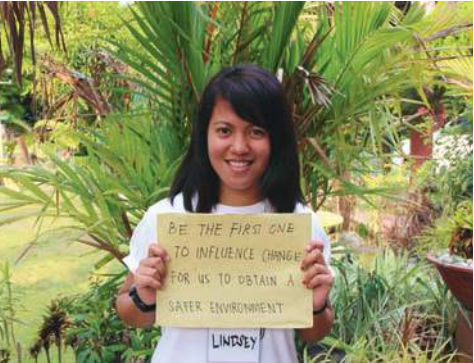 BE THE FIRST ONE
TO INFLUENCE CHANGE
FOR US TO OBTAIN A
SAFER ENVIRONMENT
LINDSEY